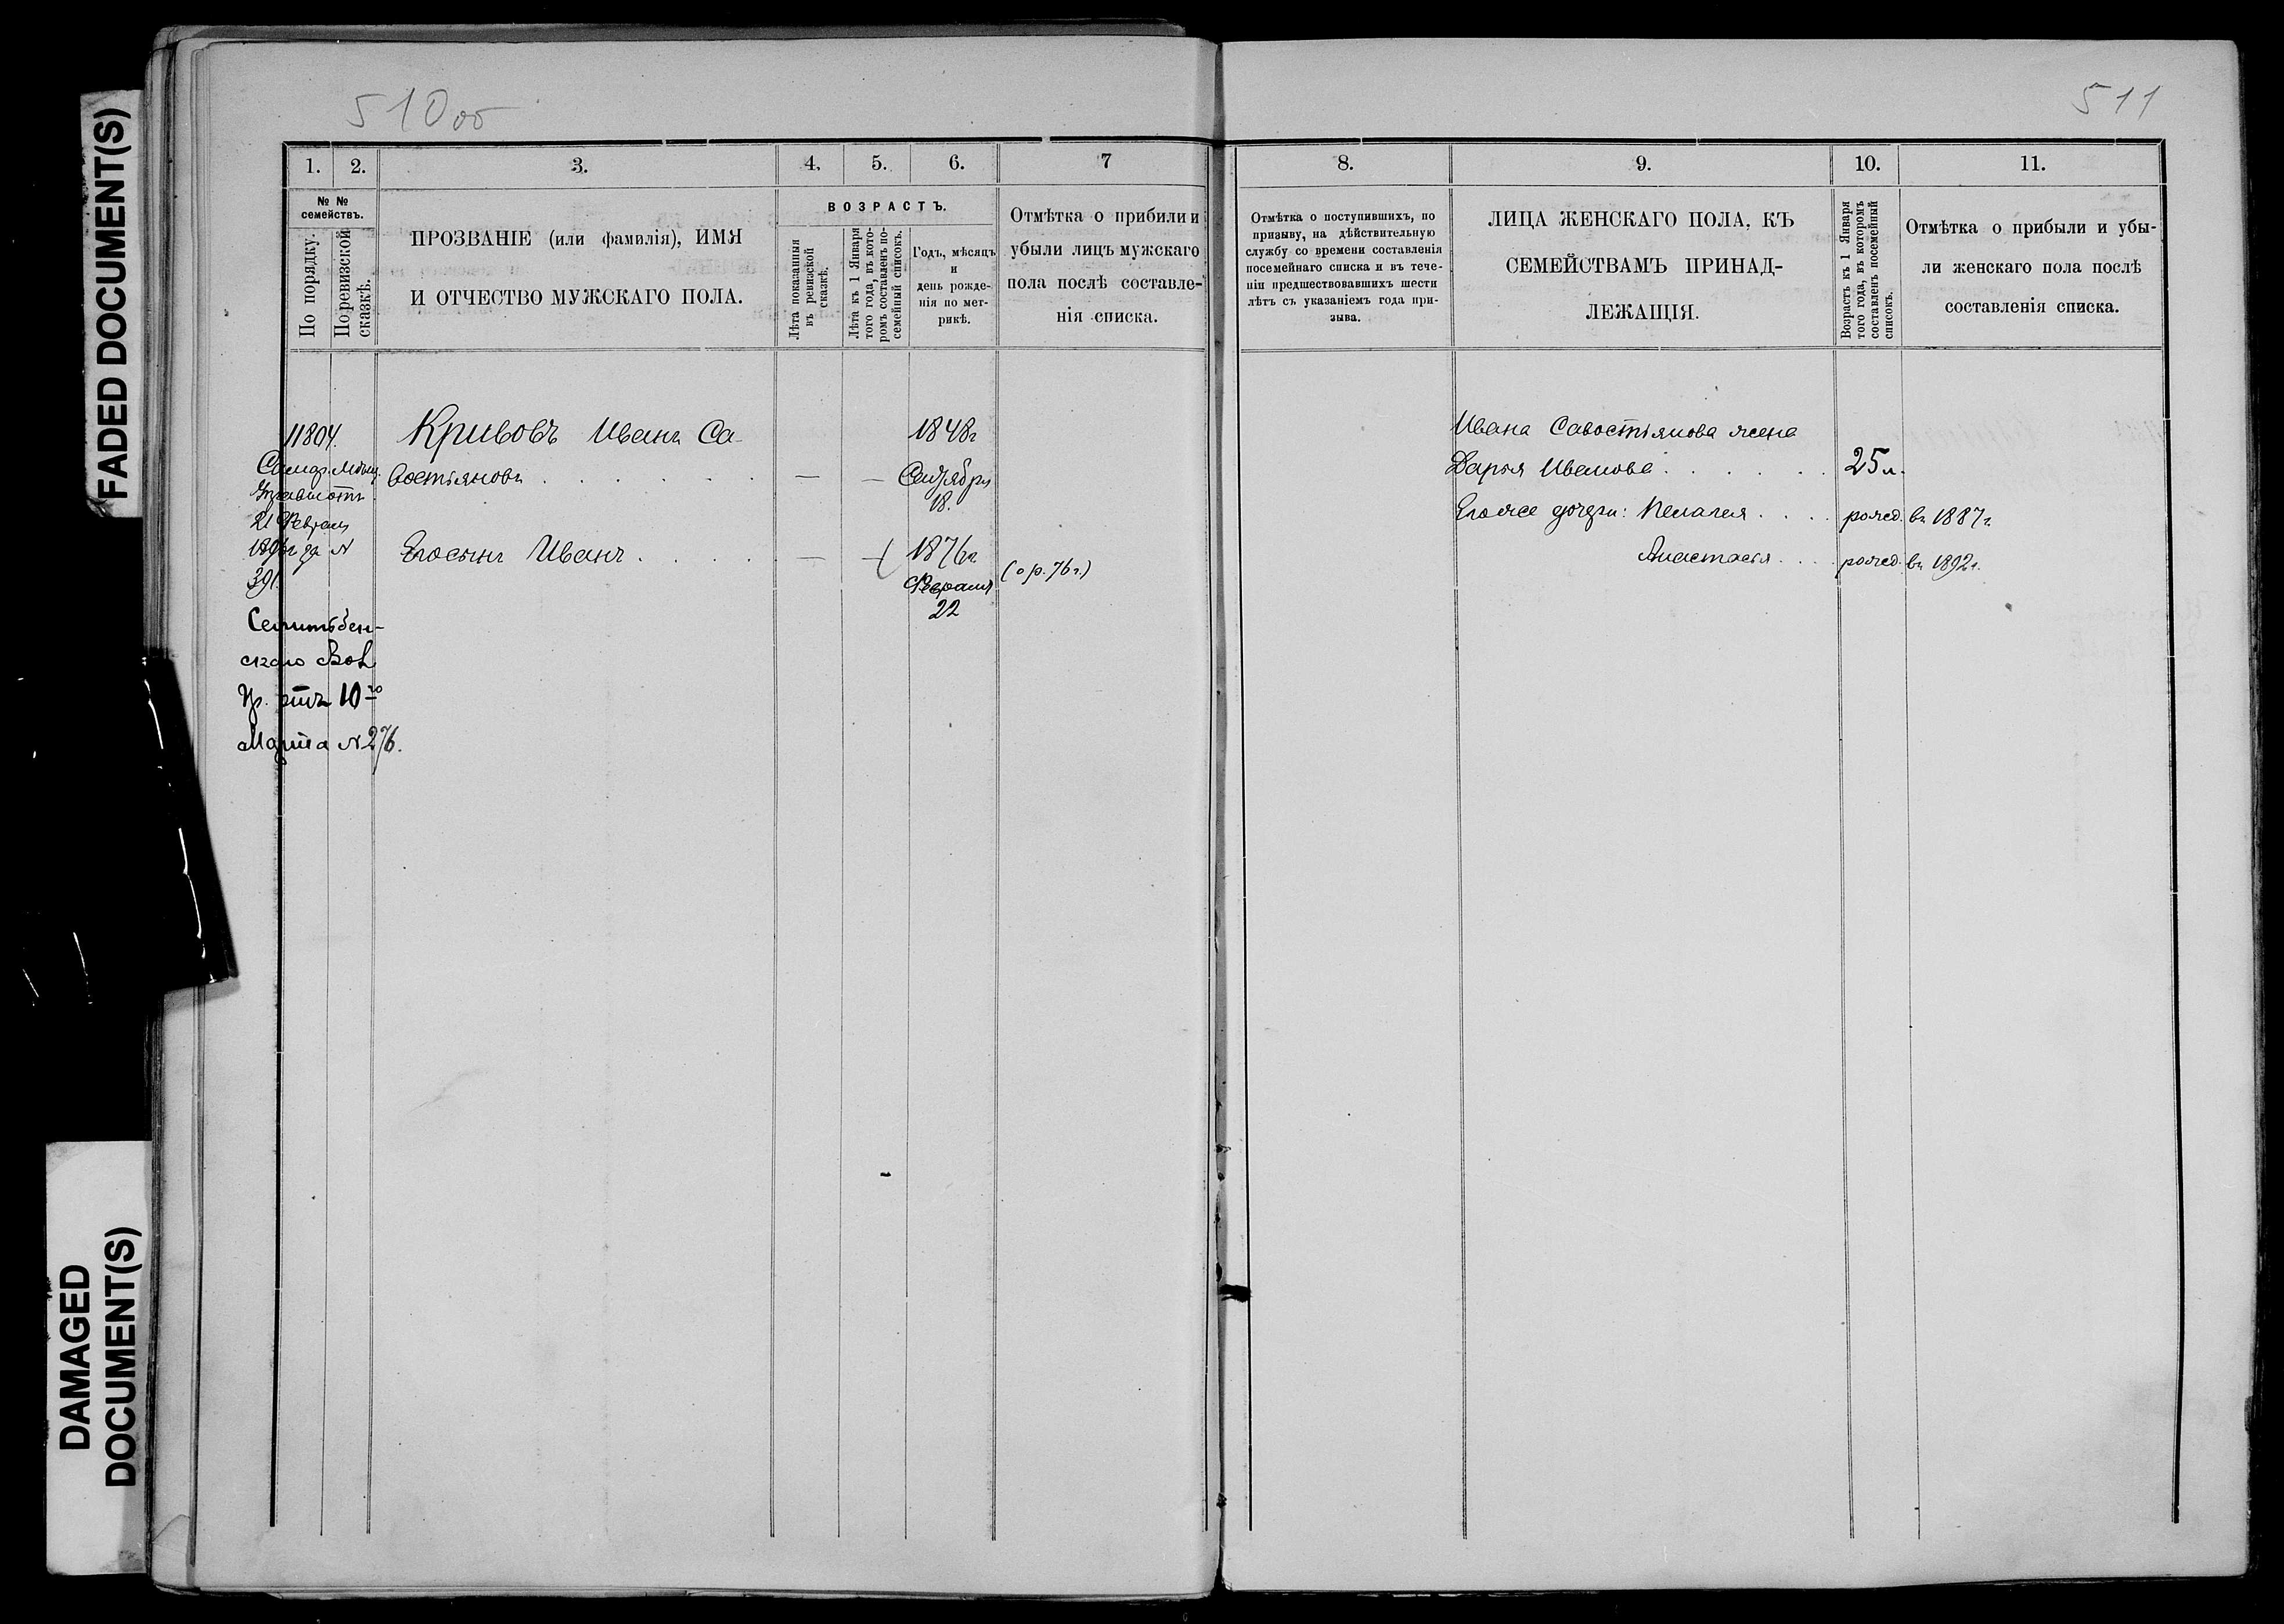 FADED DOCUMENT(S)
DAMAGED
DOCUMENT(S)
510об
1.
2.
3.
4.
5.
6.
7
№ №
семействъ.
По порядку.
По ревизской
сказкѣ.
ПРОЗВАНІЕ (или фамилія), ИМЯ
И ОТЧЕСТВО МУЖСКАГО ПОЛА.
ВОЗРАСТЪ.
Лѣта показанныя
въ ревизской
сказкѣ.
Лѣта къ 1 Января
того года, въ кото-
ромъ составленъ по-
семейный списокъ.
Годъ, мѣсяцъ
и
день рожде-
нія по мет-
рикѣ.
Отмѣтка о прибыли и
убыли лицъ мужскаго
пола послѣ составле-
нія списка.
11804.
Самар. Мѣщ.
Управы отъ
21 Февраля
за №
391.
скаго Вол
Пр. отъ 10го
Марта № 276.
Кривовъ Иванъ Са-
востьяновъ . . . . . .
— —
1848г
Сентября
18.
Его сынъ Иванъ . . . . .
— —
1876г.
Февраля
22
(о р. 76 г.)
511
8.
9.
10.
11.
Отмѣтка о поступившихъ, по
призыву, на дѣйствительную
службу со времени составленія
посемейнаго списка и въ тече-
ніи предшествовавшихъ шести
лѣтъ съ указаніемъ года при-
зыва.
ЛИЦА ЖЕНСКАГО ПОЛА, КЪ
СЕМЕЙСТВАМЪ ПРИНАД-
ЛЕЖАЩІЯ.
Возрастъ къ 1 Января
того года, въ которомъ
составленъ посемейный
списокъ.
Отмѣтка о прибыли и убы-
ли женскаго пола послѣ
составленія списка.
Ивана Савостьянова жена
Дарья Иванова . . . . . . 25 л.
Его же дочери: Пелагея . . . . рожд. въ 1887г.
Анастасья . . . . рожд. въ 1892г.